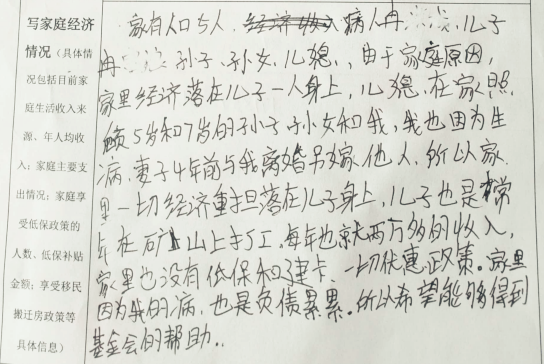 写家庭经济
情况（具体情
况包括目前家
庭生活收入来
源、年人均收
入；家庭主要支
出情况；家庭享
受低保政策的
人数、低保补贴
金额；享受移民
搬迁房政策等
具体信息）
家有人口5人，经济收入病人冉 儿子
冉 孙子、孙女、儿媳,，由于家庭原因，
家里经济落在儿子一人身上，儿媳，在家照
顾5岁和7岁的孙子孙女和我，我也因为生
病，妻子4年前与我离婚另嫁他人，所以家
里一切经济重担落在儿子身上，儿子也是常
年在矿山上手工，每年也就两万多的收入，
家里也没有低保和建卡、一切优惠政策。家里
因为我的病，也是负债累累。所以希望能够得到
基金会的帮助..